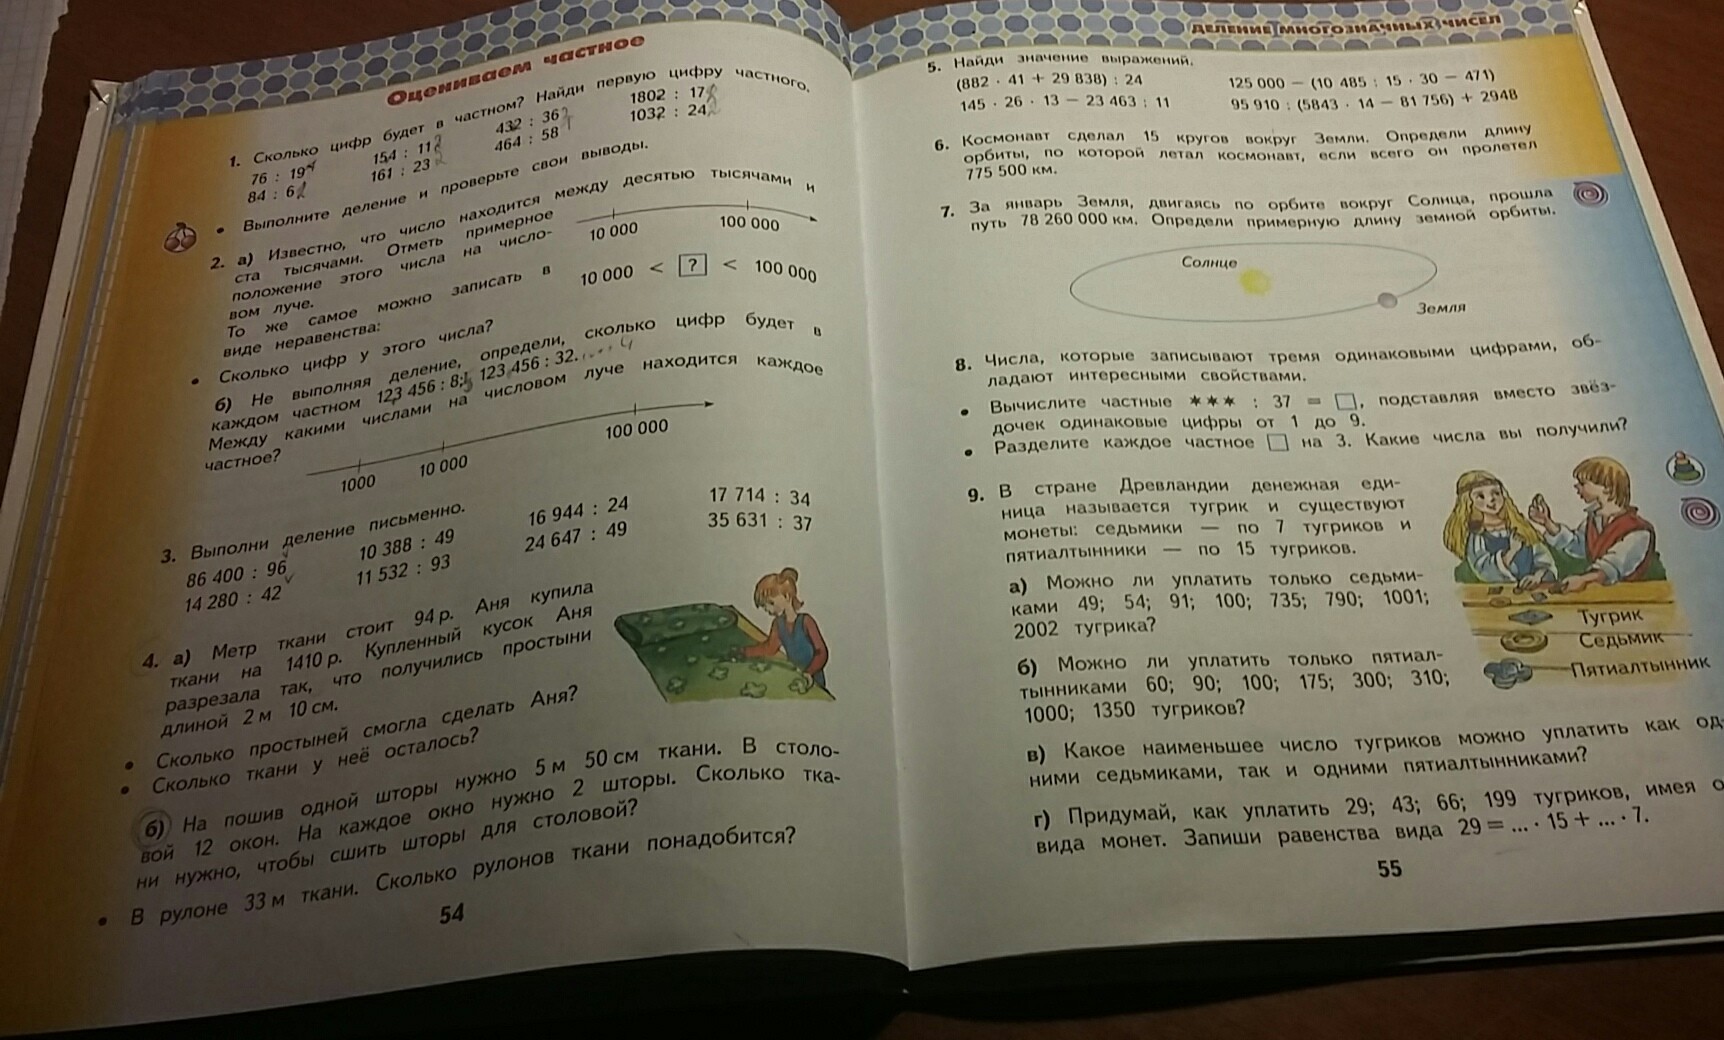 Оцениваем частное
1. Сколько цифр будет в частном? Найди первую цифру частного.
76 : 19 154 : 11 432 : 36 1802 : 17
84 : 6 161 : 23 464 : 58 1032 : 24
• Выполните деление и проверьте свои выводы.
2. а) Известно, что число находится между десятью тысячами и
ста тысячами. Отметь примерное
положение этого числа на число-
вом луче.
10 000 100 000
То же самое можно записать в
виде неравенства:
10 000 < ? < 100 000
• Сколько цифр у этого числа?
б) Не выполняя деление, определи, сколько цифр будет в
каждом частном 123 456 : 8; 123 456 : 32.
Между какими числами на числовом луче находится каждое
частное?
1000 10 000 100 000
3. Выполни деление письменно.
86 400 : 96 10 388 : 49 16 944 : 24 17 714 : 34
14 280 : 42 11 532 : 93 24 647 : 49 35 631 : 37
4. а) Метр ткани стоит 94 р. Аня купила
ткани на 1410 р. Купленный кусок Аня
разрезала так, что получились простыни
длиной 2 м 10 см.
• Сколько простыней смогла сделать Аня?
• Сколько ткани у неё осталось?
б) На пошив одной шторы нужно 5 м 50 см ткани. В столо-
вой 12 окон. На каждое окно нужно 2 шторы. Сколько тка-
ни нужно, чтобы сшить шторы для столовой?
• В рулоне 33 м ткани. Сколько рулонов ткани понадобится?
54
ДЕЛЕНИЕ МНОГОЗНАЧНЫХ ЧИСЕЛ
5. Найди значение выражений.
(882 · 41 + 29 838) : 24 125 000 − (10 485 : 15 · 30 − 471)
145 · 26 · 13 − 23 463 : 11 95 910 : (5843 · 14 − 81 756) + 2948
6. Космонавт сделал 15 кругов вокруг Земли. Определи длину
орбиты, по которой летал космонавт, если всего он пролетел
775 500 км.
7. За январь Земля, двигаясь по орбите вокруг Солнца, прошла
путь 78 260 000 км. Определи примерную длину земной орбиты.
Солнце
Земля
8. Числа, которые записывают тремя одинаковыми цифрами, об-
ладают интересными свойствами.
• Вычислите частные ✶✶✶ : 37 = □, подставляя вместо звёз-
дочек одинаковые цифры от 1 до 9.
• Разделите каждое частное □ на 3. Какие числа вы получили?
9. В стране Древландии денежная еди-
ница называется тугрик и существуют
монеты: седьмики — по 7 тугриков и
пятиалтынники — по 15 тугриков.
а) Можно ли уплатить только седьми-
ками 49; 54; 91; 100; 735; 790; 1001;
2002 тугрика?
Тугрик
Седьмик
Пятиалтынник
б) Можно ли уплатить только пятиал-
тынниками 60; 90; 100; 175; 300; 310;
1000; 1350 тугриков?
в) Какое наименьшее число тугриков можно уплатить как од-
ними седьмиками, так и одними пятиалтынниками?
г) Придумай, как уплатить 29; 43; 66; 199 тугриков, имея
вида монет. Запиши равенства вида 29 = ... · 15 + ... · 7.
55